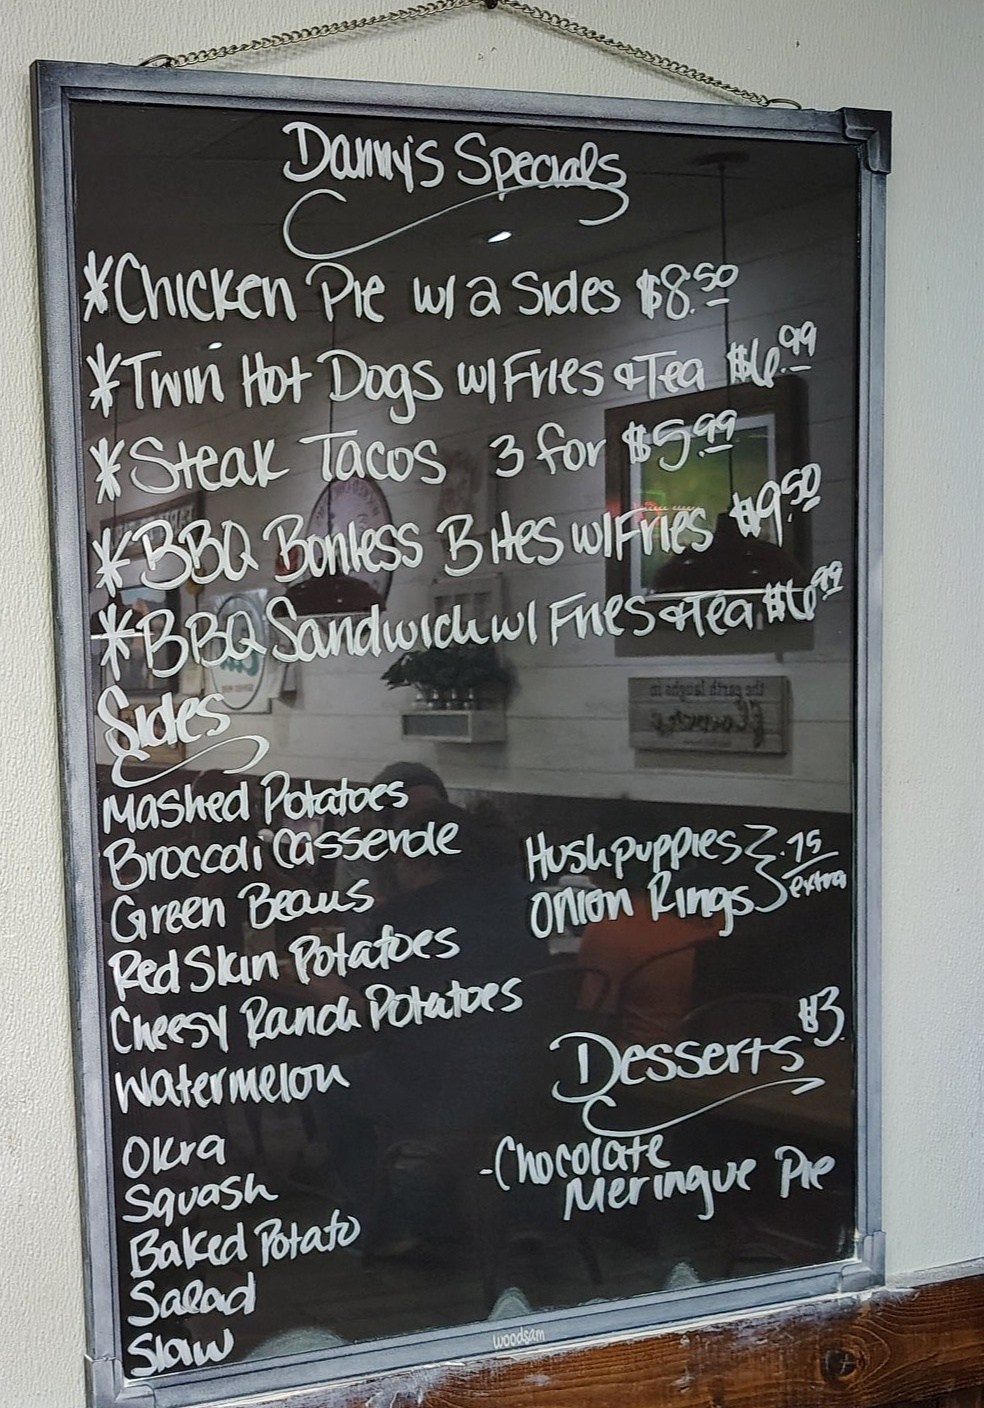 Danny's Specials
*Chicken Pie w/ 2 Sides $8.50
*Twin Hot Dogs w/ Fries & Tea $6.99
*Steak Tacos 3 for $5.99
*BBQ Bonless Bites w/ Fries $9.50
*BBQ Sandwich w/ Fries & Tea $6.99
Sides
Mashed Potatoes
Broccoli Casserole
Green Beans
Red Skin Potatoes
Cheesy Ranch Potatoes
Watermelon
Okra
Squash
Baked Potato
Salad
Slaw
Hushpuppies } .75
Onion Rings } extra
Desserts $3.
-Chocolate
Meringue Pie
woodsam
the earth laughs in
flowers